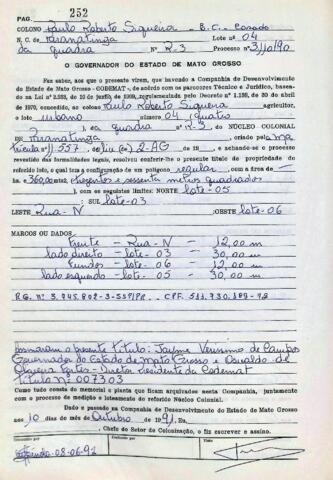 PAG. 252
COLONO Paulo Roberto Siqueira - B.C. - Casado
N. C. Paranatinga Lote n.o 04
da quadra N.o R-3 Processo n.o
O GOVERNADOR DO ESTADO DE MATO GROSSO
Faz saber, aos que o presente virem, que havendo a Companhia de Desenvolvimento
do Estado de Mato Grosso -CODEMAT-, de acôrdo com os pareceres Técnico e Jurídico, baseados
na Lei n.o de de de 1909, regulamentado pelo Decreto n.o 1.138, de 30 de abril
de 1970, concedido ao colono Paulo Roberto Siqueira agricultor,
o lote urbano número 04 quatro
), da quadra R-3 DO NÚCLEO COLONIAL
Paranatinga, criado pela ma
tricula n.o 11 557, de (do) 2-AG de 19 e achando-se o processo
revestido das formalidades legais, resolveu conferir-lhe o presente título de propriedade
do referido lote, o qual tem a configuração de um polígono regular com a área de
hs. e 360,00 m2 (trezentos e sessenta metros quadrados
), com os seguintes limites: NORTE lote-05
SUL lote-03
LESTE Rua-N OESTE lote-06
MARCOS OU DADOS
frente - Rua-N - 12,00 m
lado direito - lote-03 - 30,00 m
fundos - lote-06 - 12,00 m
lado esquerdo - lote-05 - 30,00 m
Assinaram o presente título: Jayme Verissimo de Campos
Governador do Estado de Mato Grosso e Osvaldo de
Oliveira Fortes - Diretor Presidente da Codemat
Título N.o 007303
Tudo como consta do memorial e planta que ficam arquivados nesta Companhia, juntamente
com o processo de medição e loteamento do referido Núcleo Colonial.
Dado e passado na Companhia de Desenvolvimento do Estado de Mato Grosso
aos 10 dias do mês de Outubro de 1991.
Chefe do Setor de Colonização, o fiz escrever e assino.